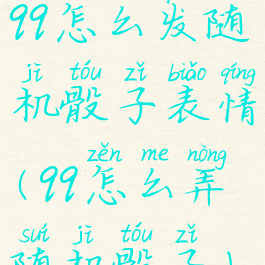 99怎么发随
jī tóu zǐ biǎo qíng
机骰子表情
zěn me nòng
(99怎么弄
suí jī tóu zǐ
随机骰子)